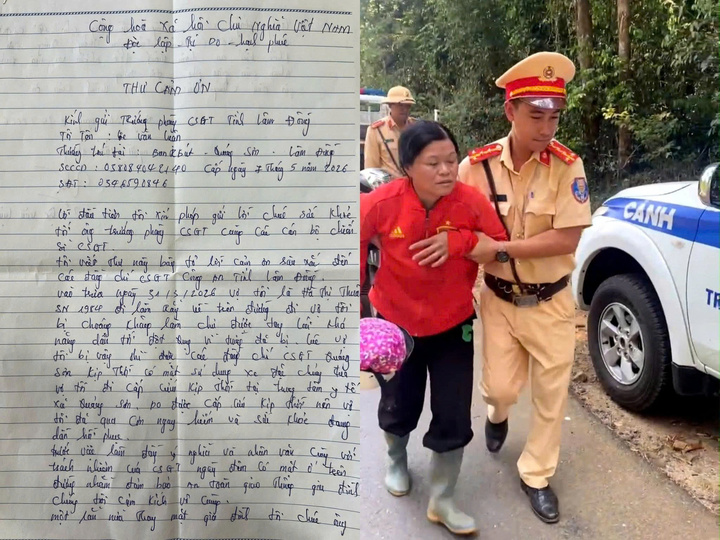 Cộng hoà xã hội chủ nghĩa Việt Nam
Độc lập - Tự Do - hạnh phúc
THƯ CẢM ƠN
Kính gửi Trưởng phòng CSGT Tỉnh Lâm Đồng
Tôi Tên : Le văn Luân
Thường trú tại : Quảng Sơn . Lâm Đồng
SCCCD : Cấp ngày 7 Tháng 5 năm 2026
SĐT : 0546590846
Lời đầu tiên tôi xin phép gửi lời chúc sức khỏe
tới ông trưởng phòng CSGT cùng các cán bộ chiến
sĩ CSGT
tôi viết Thư này bày tỏ lời cảm ơn sâu sắc đến
các đồng chí CSGT Công an Tỉnh Lâm Đồng.
vào trưa ngày 2026 vợ tôi là
SN 1984 đi làm rẫy về trên đường đi vợ tôi
bị choáng không làm chủ được tay lái khả
năng dẫn tới
tôi bị được các đồng chí CSGT Quảng
Sơn kịp Thời có mặt sử dụng xe đặc chủng đưa
vợ tôi đi cấp cứu kịp Thời tại trung tâm y tế
xã Quảng Sơn. Do được cấp cứu kịp Thời nên vợ
tôi đã qua cơn nguy hiểm và sức khỏe đang
dần hồi phục.
trước việc làm đầy ý nghĩa và nhân văn cùng với
trách nhiệm của CSGT ngày đêm có mặt ở trên
đường nhằm đảm bảo an toàn giao Thông gia đình
chúng tôi cảm kích vô cùng.
một lần nữa Thay mặt gia đình tôi chúc ông
adidas
CẢNH